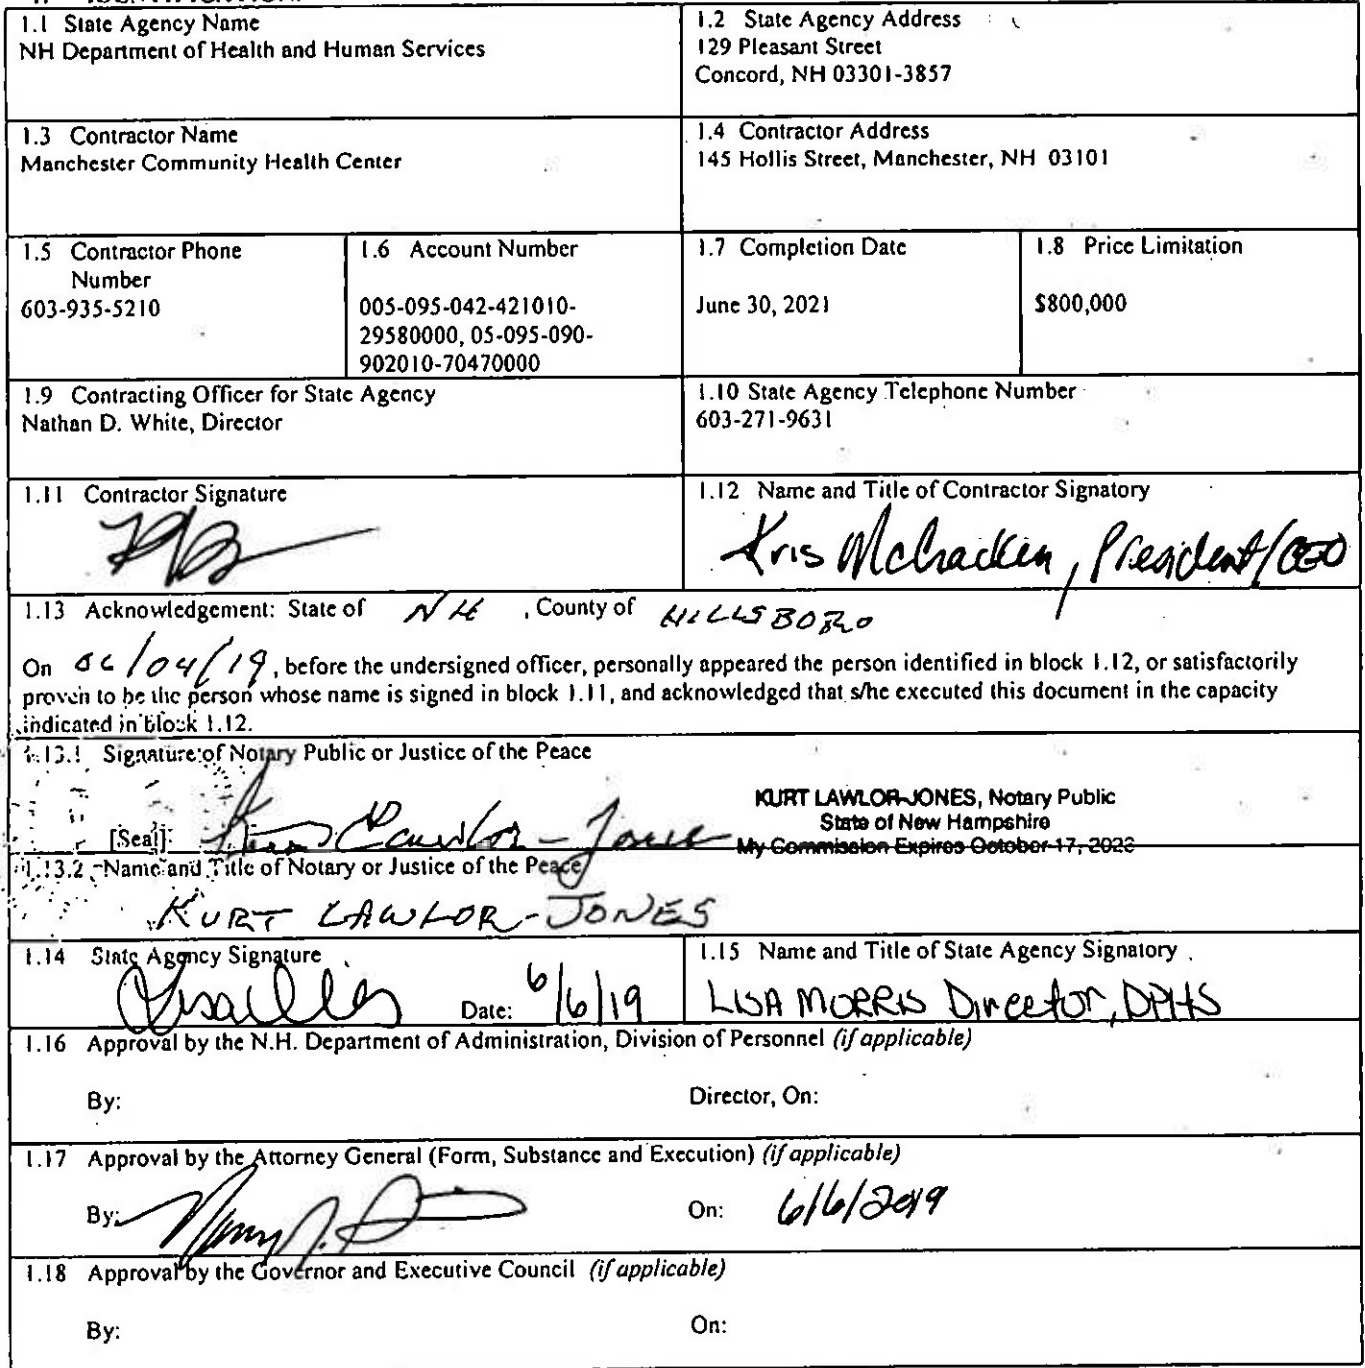 1.1 State Agency Name
NH Department of Health and Human Services
1.2 State Agency Address
129 Pleasant Street
Concord, NH 03301-3857
1.3 Contractor Name
Manchester Community Health Center
1.4 Contractor Address
145 Hollis Street, Manchester, NH 03101
1.5 Contractor Phone
Number
603-935-5210
1.6 Account Number
005-095-042-421010-
29580000, 05-095-090-
902010-70470000
1.7 Completion Date
June 30, 2021
1.8 Price Limitation
$800,000
1.9 Contracting Officer for State Agency
Nathan D. White, Director
1.10 State Agency Telephone Number
603-271-9631
1.11 Contractor Signature
1.12 Name and Title of Contractor Signatory
Kris McCracken, President/CEO
1.13 Acknowledgement: State of NH , County of HILLSBORO
On 06/04/19, before the undersigned officer, personally appeared the person identified in block 1.12, or satisfactorily
proven to be the person whose name is signed in block 1.11, and acknowledged that s/he executed this document in the capacity
indicated in block 1.12.
1.13.1 Signature of Notary Public or Justice of the Peace
KURT LAWLOR-JONES, Notary Public
State of New Hampshire
My Commission Expires October 17, 2023
[Seal]: Kurt Lawlor-Jones
1.13.2 Name and Title of Notary or Justice of the Peace
KURT LAWLOR-JONES
1.14 State Agency Signature
Date: 6/6/19
1.15 Name and Title of State Agency Signatory
LISA MORRIS Director, DPHS
1.16 Approval by the N.H. Department of Administration, Division of Personnel (if applicable)
By: Director, On:
1.17 Approval by the Attorney General (Form, Substance and Execution) (if applicable)
By: On: 6/6/2019
1.18 Approval by the Governor and Executive Council (if applicable)
By: On: